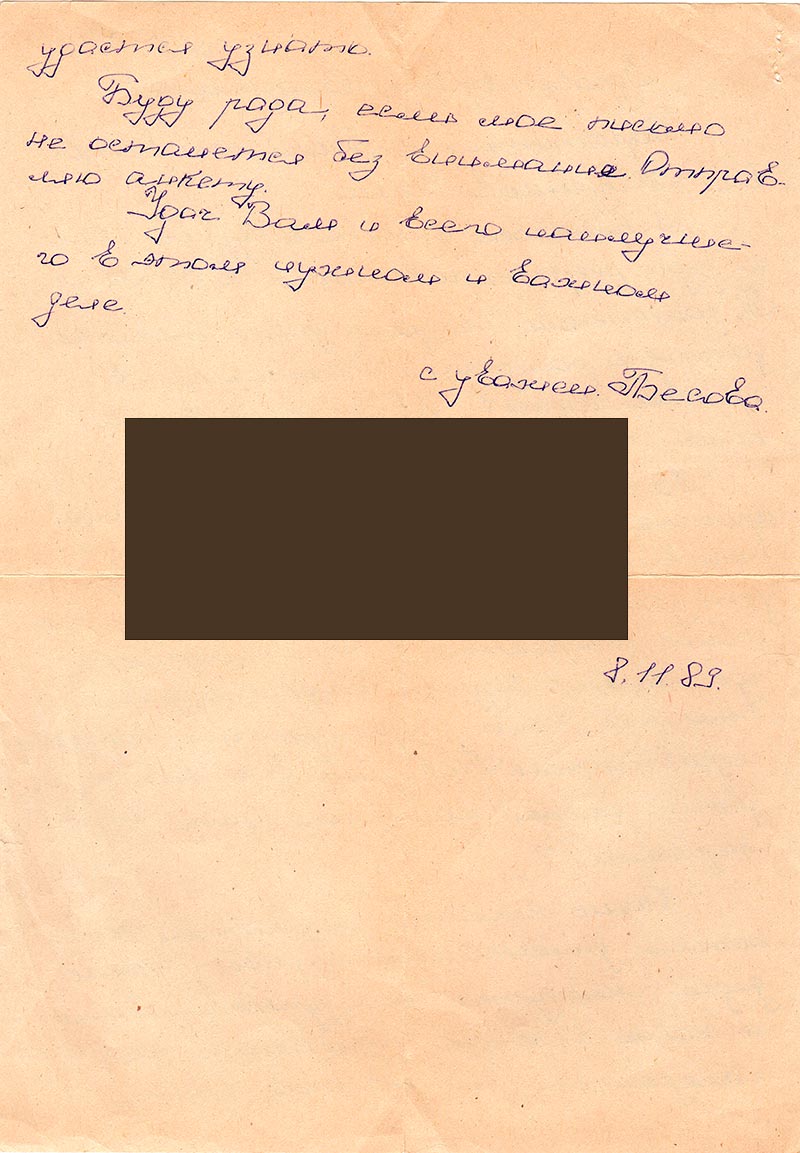 удастся узнать.
Буду рада, если мое письмо
не останется без внимания. Отправ-
ляю анкету.
Удач Вам и всего наилучше-
го в этом нужном и важном
деле.
с уважен.
8.11.89.